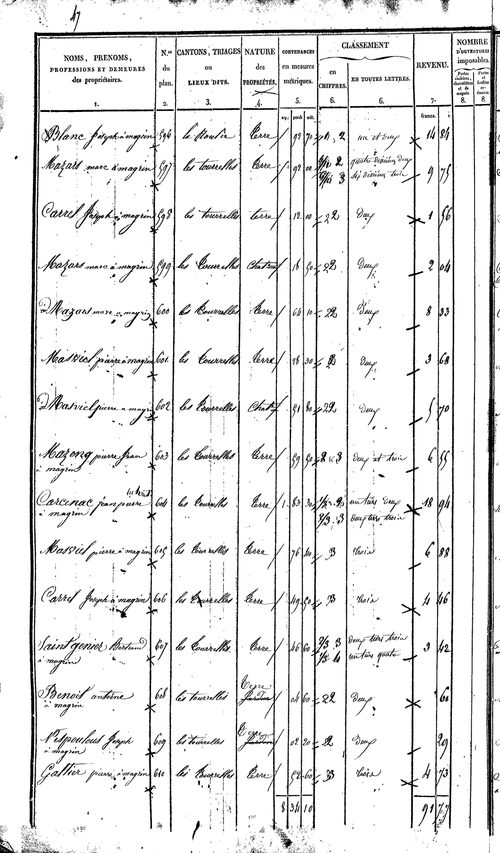 47
NOMS, PRENOMS, PROFESSIONS ET DEMEURES des propriétaires. N.os du plan. CANTONS, TRIAGES ou LIEUX DITS. NATURE des PROPRIÉTÉS. CONTENANCES en mesures métriques. CLASSEMENT en CHIFFRES. EN TOUTES LETTRES. REVENU. NOMBRE D'OUVERTURES imposables.
1. 2. 3. 4. 5. 6. 6. 7. 8. 8.
francs. c.
Blanc Joseph à magrin 596 terre 92 70 1, 2 un et deux 14 84
Mazars marc à magrin 597 les tourrelles terre 92 00 9 75
Carrel Joseph à magrin 598 les tourrelles terre 12 00 2 Deux 1 56
Mazars marc à magrin 599 les tourrelles 18 50 2 Deux 2 04
d° Mazars marc à magrin 600 les tourrelles terre 64 10 2 Deux 8 33
Masviel pierre à magrin 601 les tourrelles terre 28 30 2 Deux 3 68
d° Masviel pierre à magrin 602 les tourrelles 51 80 2 Deux 5 70
pierre Jean à magrin 603 les tourrelles terre 59 50 2 3 deux et trois 6 55
Carcenac jean pierre à magrin 604 les tourrelles terre 1 83 30 1/3 2 2/3 3 un tiers deux deux tiers trois 18 94
Masviel pierre à magrin 605 les tourrelles terre 76 40 3 trois 6 88
Carrel Joseph à magrin 606 les tourrelles terre 49 50 3 trois 4 46
Saint genier Bertrand à magrin 607 les tourrelles terre 46 60 2/3 3 1/3 4 deux tiers trois un tiers quatre 3 42
Benoit antoine à magrin 608 les tourrelles terre 04 60 2 Deux 60
Nespoulous Joseph à magrin 609 les tourrelles terre 02 20 2 Deux 29
Galtier pierre à magrin 610 les tourrelles terre 52 60 3 trois 4 73
8 34 10 91 77